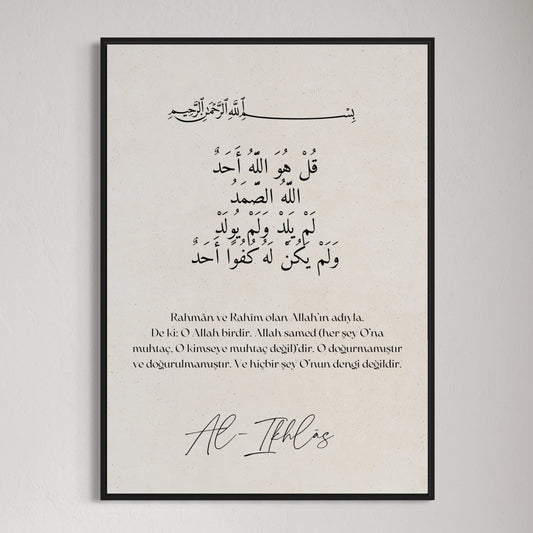 بِسْمِ ٱللَّهِ ٱلرَّحْمَٰنِ ٱلرَّحِيمِ
قُلْ هُوَ اللَّهُ أَحَدٌ
اللَّهُ الصَّمَدُ
لَمْ يَلِدْ وَلَمْ يُولَدْ
وَلَمْ يَكُنْ لَهُ كُفُوًا أَحَدٌ
Rahmân ve Rahîm olan Allah'ın adıyla.
De ki: O Allah birdir. Allah samed (her şey O'na
muhtaç, O kimseye muhtaç değil)'dir. O doğurmamıştır
ve doğurulmamıştır. Ve hiçbir şey O'nun dengi değildir.
Al-Ikhlās